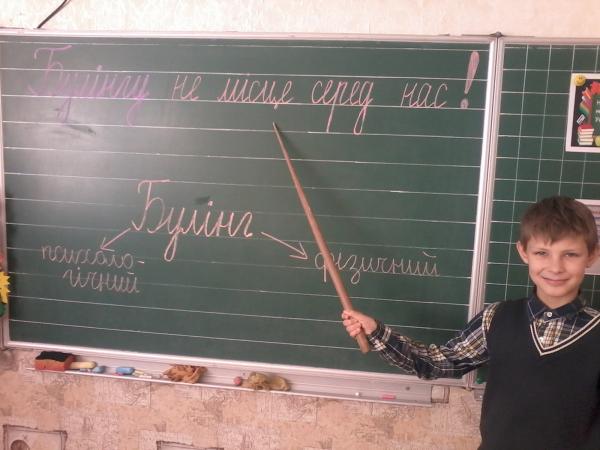 Булінгу не місце серед нас!
Булінг
психоло-
гічний
фізичний